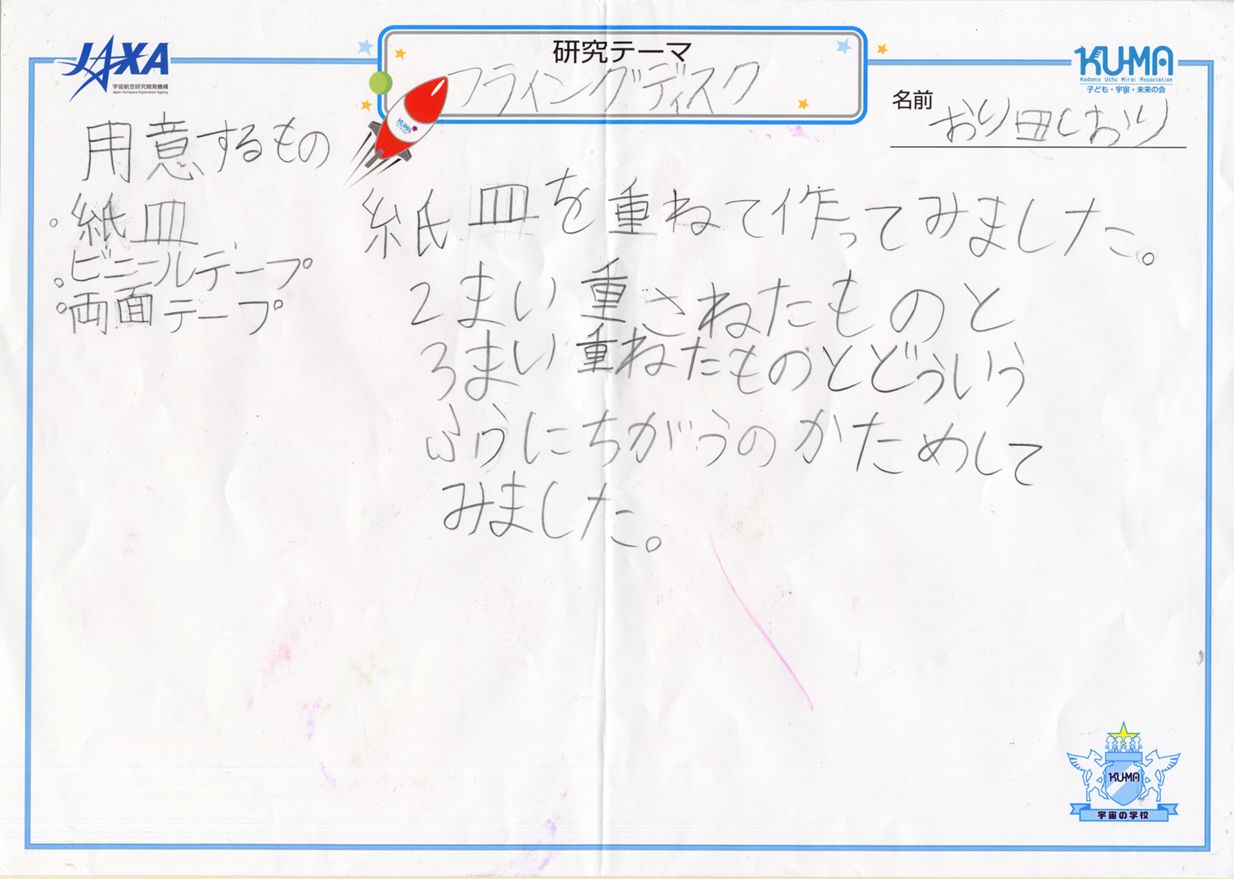 JAXA
宇宙航空研究開発機構
Japan Aerospace Exploration Agency
研究テーマ
フライングディスク
KUMA
KU-MA
Kodomo Uchu Mirai Association
子ども・宇宙・未来の会
名前
おり田しおり
用意するもの
。紙皿
。ビニールテープ
。両面テープ
紙皿を重ねて作ってみました。
2まい重さねたものと
3まい重ねたものとどういう
ふうにちがうのかためして
みました。
KU-MA
宇宙の学校